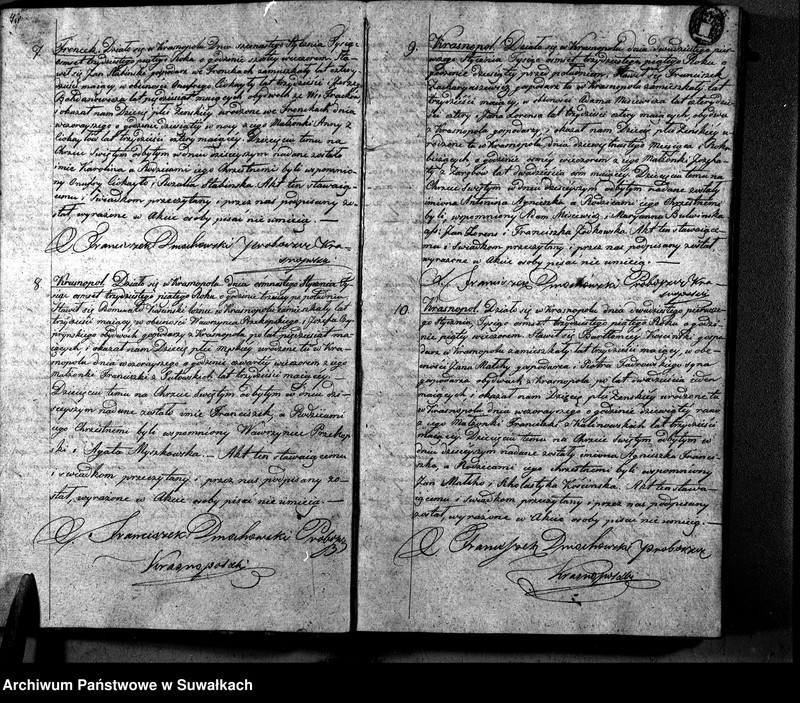 7. Froncek. Działo się w Krasnopolu Dnia szesnastego Stycznia Tysiąc
ośmset trzydziestego piątego Roku o godzinie szóstej wieczorem. Sta-
wił się Jan Stabinski gospodarz we Fronckach zamieszkały lat cztery
dzieści mający, w obecności Onufrego lat trzydzieści i Jerzego
Bohdanowicza lat pięćdziesiąt mających obydwóch ze Wsi Froncków
i okazał nam Dziecię płci Żenskiej urodzone we Fronckach dnia
wczorayszego o godzinie dziesiątej w nocy z iego Małżonki Anny z
lat trzydzieści cztery mającey. Dziecięciu temu na
Chrzcie Swiętym odbytym w dniu dzisieyszym nadane zostało
imie Karolina a Rodzicami iego Chrzestnemi byli wspomnio-
ny Onufry i Rozalia Stabinska. Akt ten stawaią-
cemu i Swiadkom przeczytany i przez nas podpisany zo-
stał, wyrażone w Akcie osoby pisać nie umieią. —
X. Franciszek Dmochowski Proboszcz Kra-
snopolski
8. Krasnopol. Działo się w Krasnopolu dnia osmnastego Stycznia Ty-
siąc ośmset trzydziestego piątego Roku o godzinie trzeciey po południu
Stawił się Romuald w Krasnopolu zamieszkały lat
trzydzieści mający w obecności Wawrzynca Przekopskiego i Józefa
obydwóch gospodarzy z Krasnopola po lat pięćdziesiąt ma-
iących i okazał nam Dziecię płci męzkiey urodzone tu w Kra-
snopolu dnia wczorayszego o godzinie czwartey wieczorem z iego
małżonki Franciszki z lat trzydzieści maiącey. —
Dziecięciu temu na Chrzcie Swiętym odbytym w dniu dzi-
sieyszym nadane zostało imie Franciszek, a Rodzicami
iego Chrzestnemi byli wspomniony Wawrzyniec Przekop-
ski i Agata Myszkowska. — Akt ten stawaiącemu
i swiadkom przeczytany i przez nas podpisany zo-
stał, wyrażone w Akcie osoby pisać nie umieią. —
X. Franciszek Dmochowski Proboszcz
Krasnopolski
9. Krasnopol. Działo się w Krasnopolu dnia dwudziestego pier-
wszego Stycznia Tysiąc ośmset trzydziestego piątego Roku o
godzinie dziesiątey przed południem, Stawił się Franciszek
Zacharyaszewicz gospodarz tu w Krasnopolu zamieszkały lat
trzydzieści maiący, w obecności Adama Misiewicza lat czterdzie-
ści cztery i Jana Lorensa lat trzydzieści cztery maiących obydwóch
z Krasnopola gospodarzy, i okazał nam Dziecię płci Żenskiej u-
rodzone tu w Krasnopolu, dnia dziewiętnastego Miesiąca i Roku
bieżących o godzinie osmey wieczorem z iego Małżonki Józefa-
ty z lat dwadzieścia osm maiącey. Dziecięciu temu na
Chrzcie Swiętym w dniu dzisieyszym odbytym nadane zostały
imiona Antonina Agnieszka a Rodzicami iego Chrzestnemi
byli wspomniony Adam Misiewicz i Maryanna
assi: Jan Lorens i Franciszka Żydkowska. Akt ten stawaiące-
mu i Swiadkom przeczytany i przez nas podpisany został
wyrażone w Akcie osoby pisać nie umieią. —
X. Franciszek Dmochowski Proboszcz Kra-
snopolski
10. Krasnopol. Działo się w Krasnopolu dnia dwudziestego pierwsze-
go Stycznia, Tysiąc ośmset trzydziestego piątego Roku o godzi-
nie piątey wieczorem. Stawił się Bartłomiey Kosinski gospo-
darz w Krasnopolu zamieszkały lat trzydzieści maiący, w obe-
cności Jana Malszki gospodarza i Piotra syna
gospodarza obydwóch z Krasnopola po lat dwadzieścia
maiących i okazał nam Dziecię płci Żenskiey urodzone tu
w Krasnopolu dnia wczorayszego o godzinie dziewiątey rano
z iego Małżonki Franciszki z Kalinowskich lat trzydzieści
maiącey. Dziecięciu temu na Chrzcie Swiętym odbytym w
dniu dzisieyszym nadane zostały imiona Agnieszka Francisz-
ka, a Rodzicami iego Chrzestnemi byli wspomniony
Jan Malszko i Scholastyka Kosinska. Akt ten stawa-
iącemu i Swiadkom przeczytany i przez nas podpisany
został, wyrażone w Akcie osoby pisać nie umieią. —
X. Franciszek Dmochowski Proboszcz
Krasnopolski
Archiwum Państwowe w Suwałkach